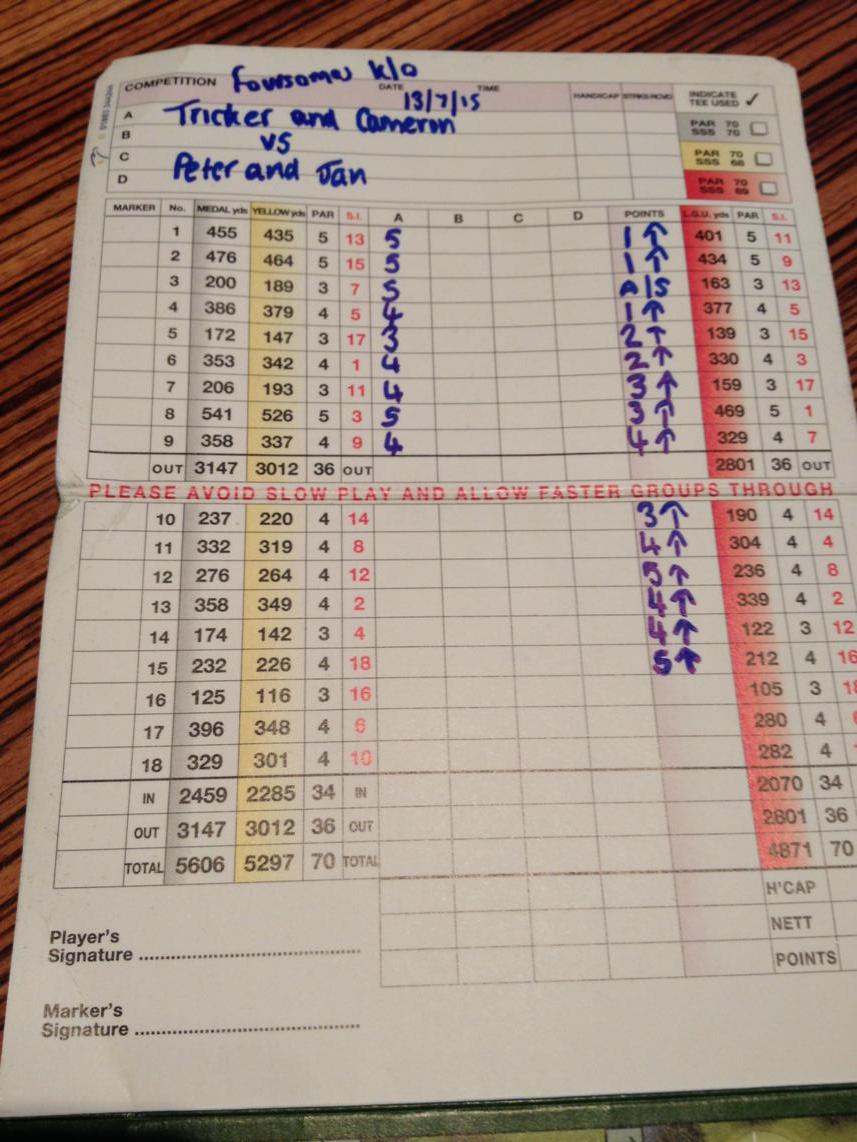 COMPETITION Foursomes K/O DATE 13/7/15 TIME HANDICAP STROKES RCVD INDICATE TEE USED ✓
A Tricker and Cameron PAR 70 SSS 70
B vs
C PAR 70 SSS 68
D Peter and Jan PAR 70 SSS 69
MARKER No. MEDAL yds YELLOW yds PAR S.I. A B C D POINTS L.G.U. yds PAR S.I.
1 455 435 5 13 5 1↑ 401 5 11
2 476 464 5 15 5 1↑ 434 5 9
3 200 189 3 7 5 A/S 163 3 13
4 386 379 4 5 4 1↑ 377 4 5
5 172 147 3 17 3 2↑ 139 3 15
6 353 342 4 1 4 2↑ 330 4 3
7 206 193 3 11 4 3↑ 159 3 17
8 541 526 5 3 5 3↑ 469 5 1
9 358 337 4 9 4 4↑ 329 4 7
OUT 3147 3012 36 OUT 2801 36 OUT
PLEASE AVOID SLOW PLAY AND ALLOW FASTER GROUPS THROUGH
10 237 220 4 14 3↑ 190 4 14
11 332 319 4 8 4↑ 304 4 4
12 276 264 4 12 5↑ 236 4 8
13 358 349 4 2 4↑ 339 4 2
14 174 142 3 4 4↑ 122 3 12
15 232 226 4 18 5↑ 212 4 16
16 125 116 3 16 105 3
17 396 348 4 6 280 4
18 329 301 4 10 282 4
IN 2459 2285 34 IN 2070 34
OUT 3147 3012 36 OUT 2801 36
TOTAL 5606 5297 70 TOTAL 4871 70
H'CAP
NETT
POINTS
Player's
Signature
Marker's
Signature